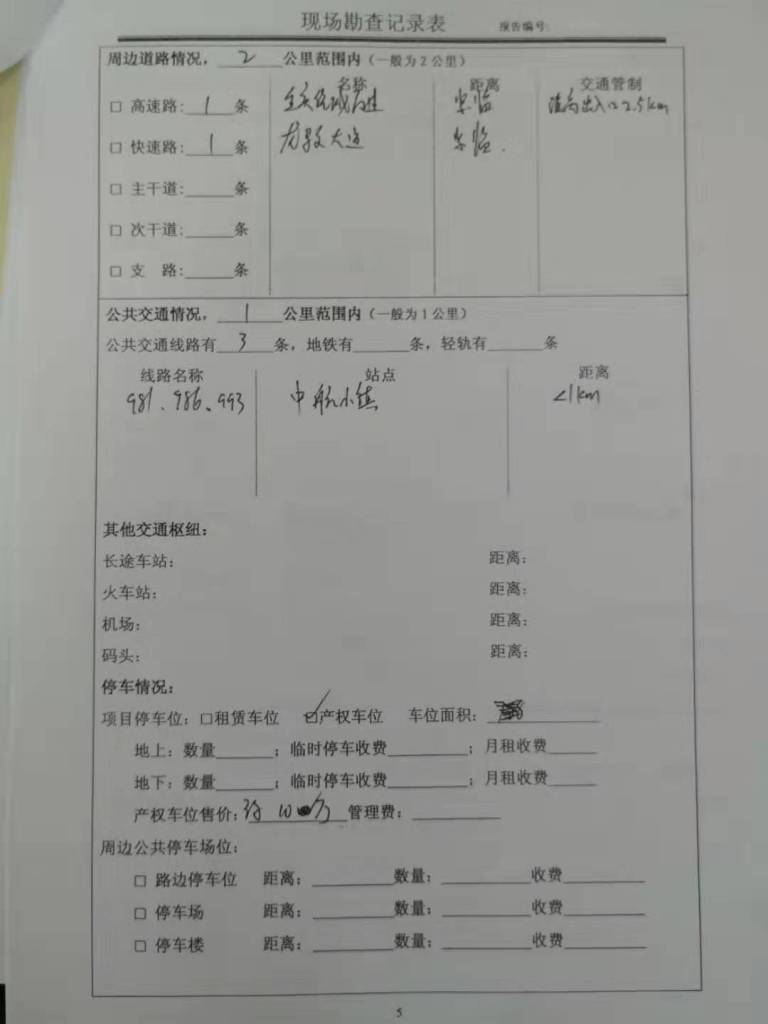 现场勘查记录表 报告编号:
周边道路情况，2 公里范围内（一般为2公里）
名称 距离 交通管制
□ 高速路: 1 条
□ 快速路: 1 条 大道
□ 主干道: 条
□ 次干道: 条
□ 支 路: 条
公共交通情况，1 公里范围内（一般为1公里）
公共交通线路有 3 条，地铁有 条，轻轨有 条
线路名称 站点 距离
981、986、993 中航小镇 <1km
其他交通枢纽：
长途车站： 距离：
火车站： 距离：
机场： 距离：
码头： 距离：
停车情况：
项目停车位：□租赁车位 ☑产权车位 车位面积：
地上：数量 ；临时停车收费 ；月租收费
地下：数量 ；临时停车收费 ；月租收费
产权车位售价: 10 万 管理费：
周边公共停车场位：
□ 路边停车位 距离： 数量： 收费
□ 停车场 距离： 数量： 收费
□ 停车楼 距离： 数量： 收费
5